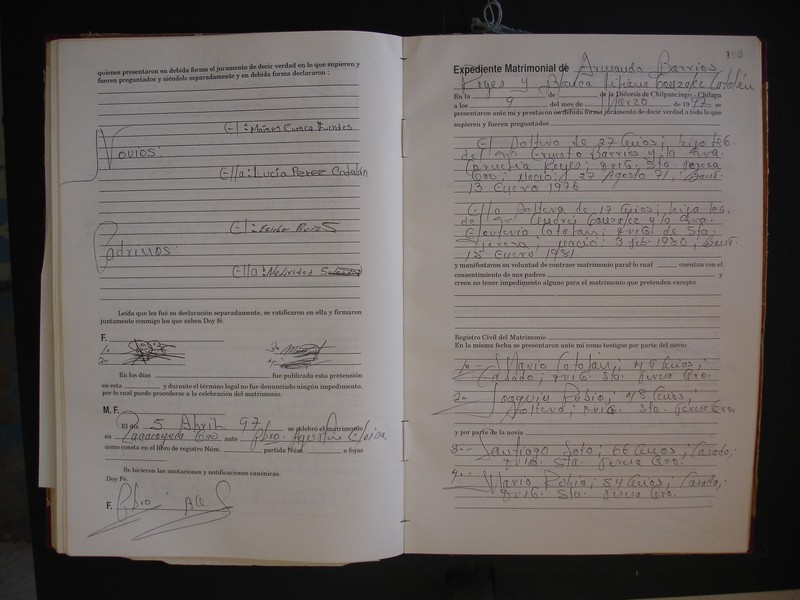 quienes presentaron en debida forma el juramento de decir verdad en lo que supieren y
fueren preguntados y siéndole separadamente y en debida forma declararon :
El: Moises Cuenca Fuentes
Novios:
Ella: Lucía Perez Catalán
El:
Padrinos:
Ella: Natividad
Leída que les fué su declaración separadamente, se ratificaron en ella y firmaron
juntamente conmigo los que saben Doy fé.
F.
En los días fue publicada esta pretensión
en esta y durante el término legal no fue denunciado ningún impedimento,
por lo cual puede procederse a la celebración del matrimonio.
M. F.
El día 5 Abril 97 se celebró el matrimonio
en Zacacoyuca Gro ante Pbro. Agustin
como consta en el libro de registro Núm. partida Núm. a fojas
Se hicieron las anotaciones y notificaciones canónicas.
Doy Fé.
F. Pbro
Expediente Matrimonial de Armando Barrios
Reyes y Blanca Liliana Gonzalez Catalán
En la de de la Diócesis de Chilpancingo - Chilapa
a los 9 del mes de Marzo de 1997 se
presentaron ante mí y prestaron en debida forma juramento de decir verdad a todo lo que
supieren y fueren preguntados
El Soltero de 27 años; hijo leg.
del Sr. Ernesto Barrios y la Sra.
Reyes; orig. Sta. Teresa
Gro. Nació: 27 Agosto 71; Baut.
13 Enero 1976
Ella Soltera de 17 años; hija leg.
de Sr. Andrés González y la Sra.
Catalán; orig. de Sta.
Teresa, Nació 3 feb. 1980; Baut.
13 Enero 1981
y manifestaron su voluntad de contraer matrimonio paral lo cual cuentan con el
consentimiento de sus padres y
creen no tener impedimento alguno para el matrimonio que pretenden excepto
Registro Civil del Matrimonio
En la misma fecha se presentaron ante mí como testigos por parte del novio
1o- Mario Catalán; 49 años;
Casado; orig. Sta. Teresa Gro.
2o- Joaquin Rubio; 48 años;
Soltero; orig. Sta. Teresa Gro.
y por parte de la novia
3o- Santiago Soto; 66 años; Casado;
orig. Sta. Teresa Gro.
4o- Mario Rubio; 54 años; Casado,
orig. Sta. Teresa Gro.